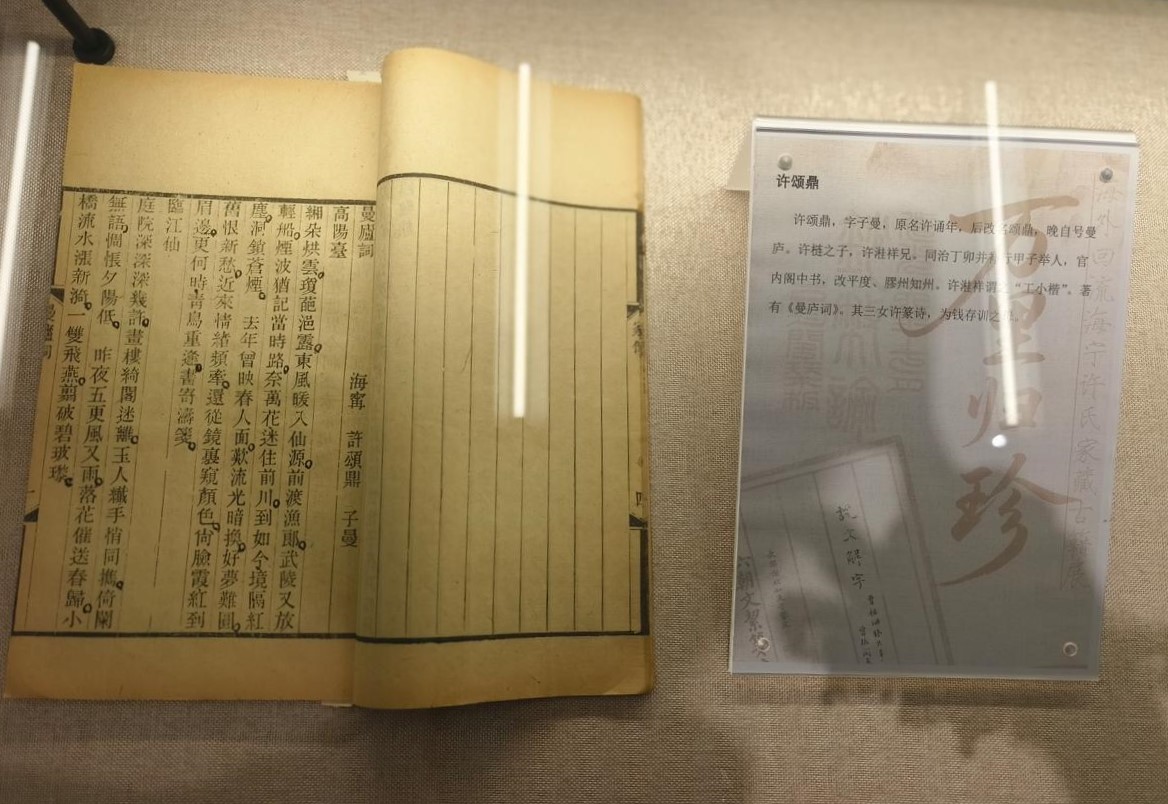 曼廬詞 海寧 許頌鼎 子曼
高陽臺
緗朵烘雲。瓊葩浥露。東風暖入仙源。前渡漁郎。武陵又放
輕船。煙波猶記當時路。奈萬花迷住前川。到如今境隔紅
塵。洞鎖蒼煙。 去年曾映春人面。歎流光暗換。好夢難圓。
舊恨新愁。近來情緒頻牽。還從鏡裏窺顏色。尙臉霞紅到
眉邊。更何時青鳥重逢。書寄濤箋。
臨江仙
庭院深深深幾許。畫樓綺閣迷離。玉人纖手悄同攜。倚闌
無語。惆悵夕陽低。 昨夜五更風又雨。落花催送春歸。小
橋流水漲新漪。一雙飛燕。翦破碧玻瓈。
曼廬詞
许颂鼎
许颂鼎，字子曼，原名许诵年，后改名颂鼎，晚自号曼
庐。许梿之子，许溎祥兄。同治丁卯并补行甲子举人，官
内阁中书，改平度、膠州知州。许溎祥谓之“工小楷”。著
有《曼庐词》。其三女许篆诗，为钱存训之母。
万里归珍
海外回流海宁许氏家藏古籍展
说文解字
六朝文絜笺